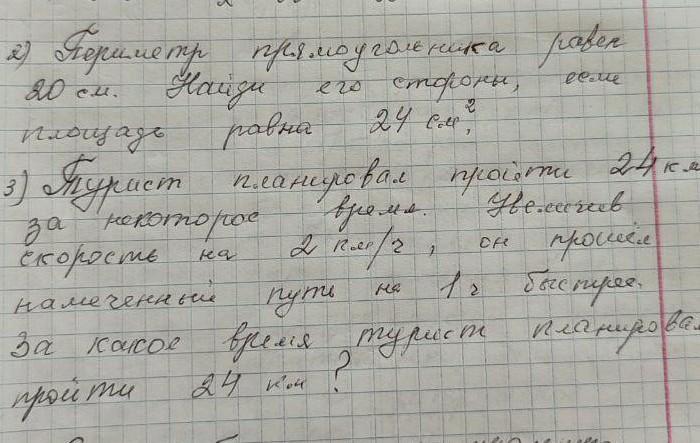 2) Периметр прямоугольника равен
20 см. Найди его стороны, если
площадь равна 24 см²,
3) Турист планировал пройти 24 км
за некоторое время. Увеличив
скорость на 2 км/ч, он прошёл
намеченный путь на 1 ч быстрее.
За какое время турист планировал
пройти 24 км?